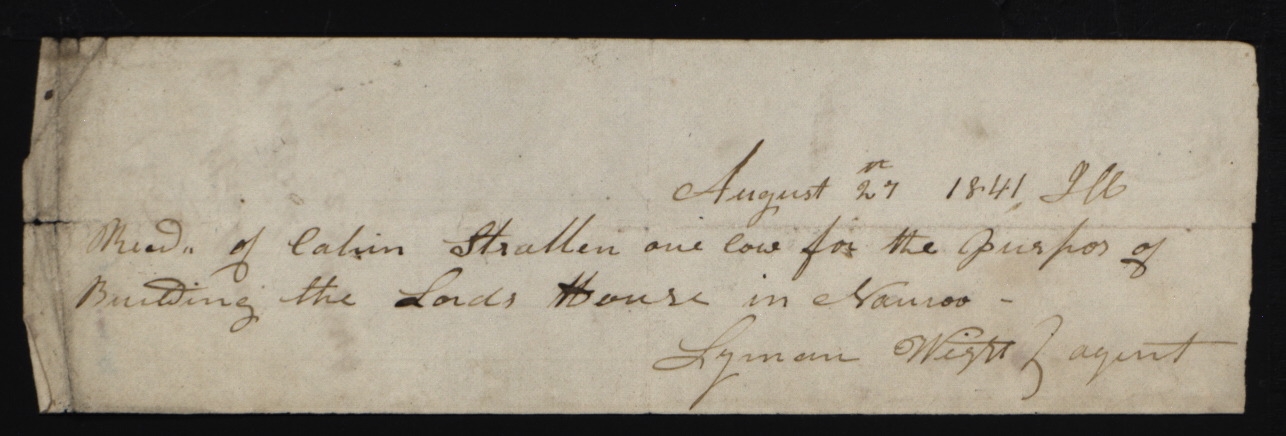 August 27th 1841, Ill
Recd. of Calvin Strallen one cow for the purpos of
Building the Lords House in Nauvoo -
Lyman Wight } agent